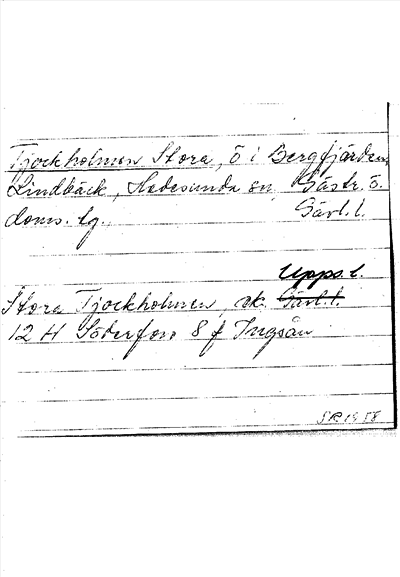 Tjockholmen Stora, ö i Bergfjärden,
Lindbäck, Hedesunda sn, Gästr. ö.
doms. lg., Gävl. l.
Upps. l.
Stora Tjockholmen, ek. Gävl. l.
12 H Söderfors 8 f Ingsån
SR 1958